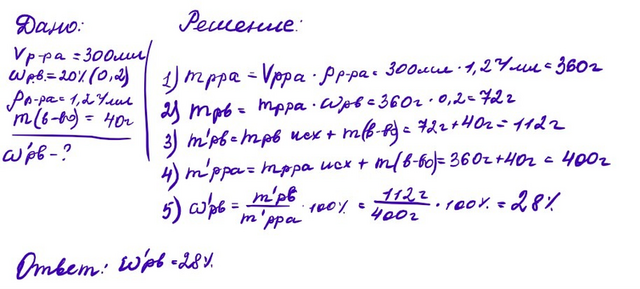 Дано:
Vр-ра = 300мл
ωрв = 20% (0,2)
ρр-ра = 1,2г/мл
m(в-во) = 40г
ω'рв - ?
Решение:
1) mрра = Vрра · ρр-ра = 300мл · 1,2г/мл = 360г
2) mрв = mрра · ωрв = 360г · 0,2 = 72г
3) m'рв = mрв исх + m(в-во) = 72г + 40г = 112г
4) m'рра = mрра исх + m(в-во) = 360г + 40г = 400г
5) ω'рв = m'рв / m'рра · 100% = 112г / 400г · 100% = 28%
Ответ: ω'рв = 28%